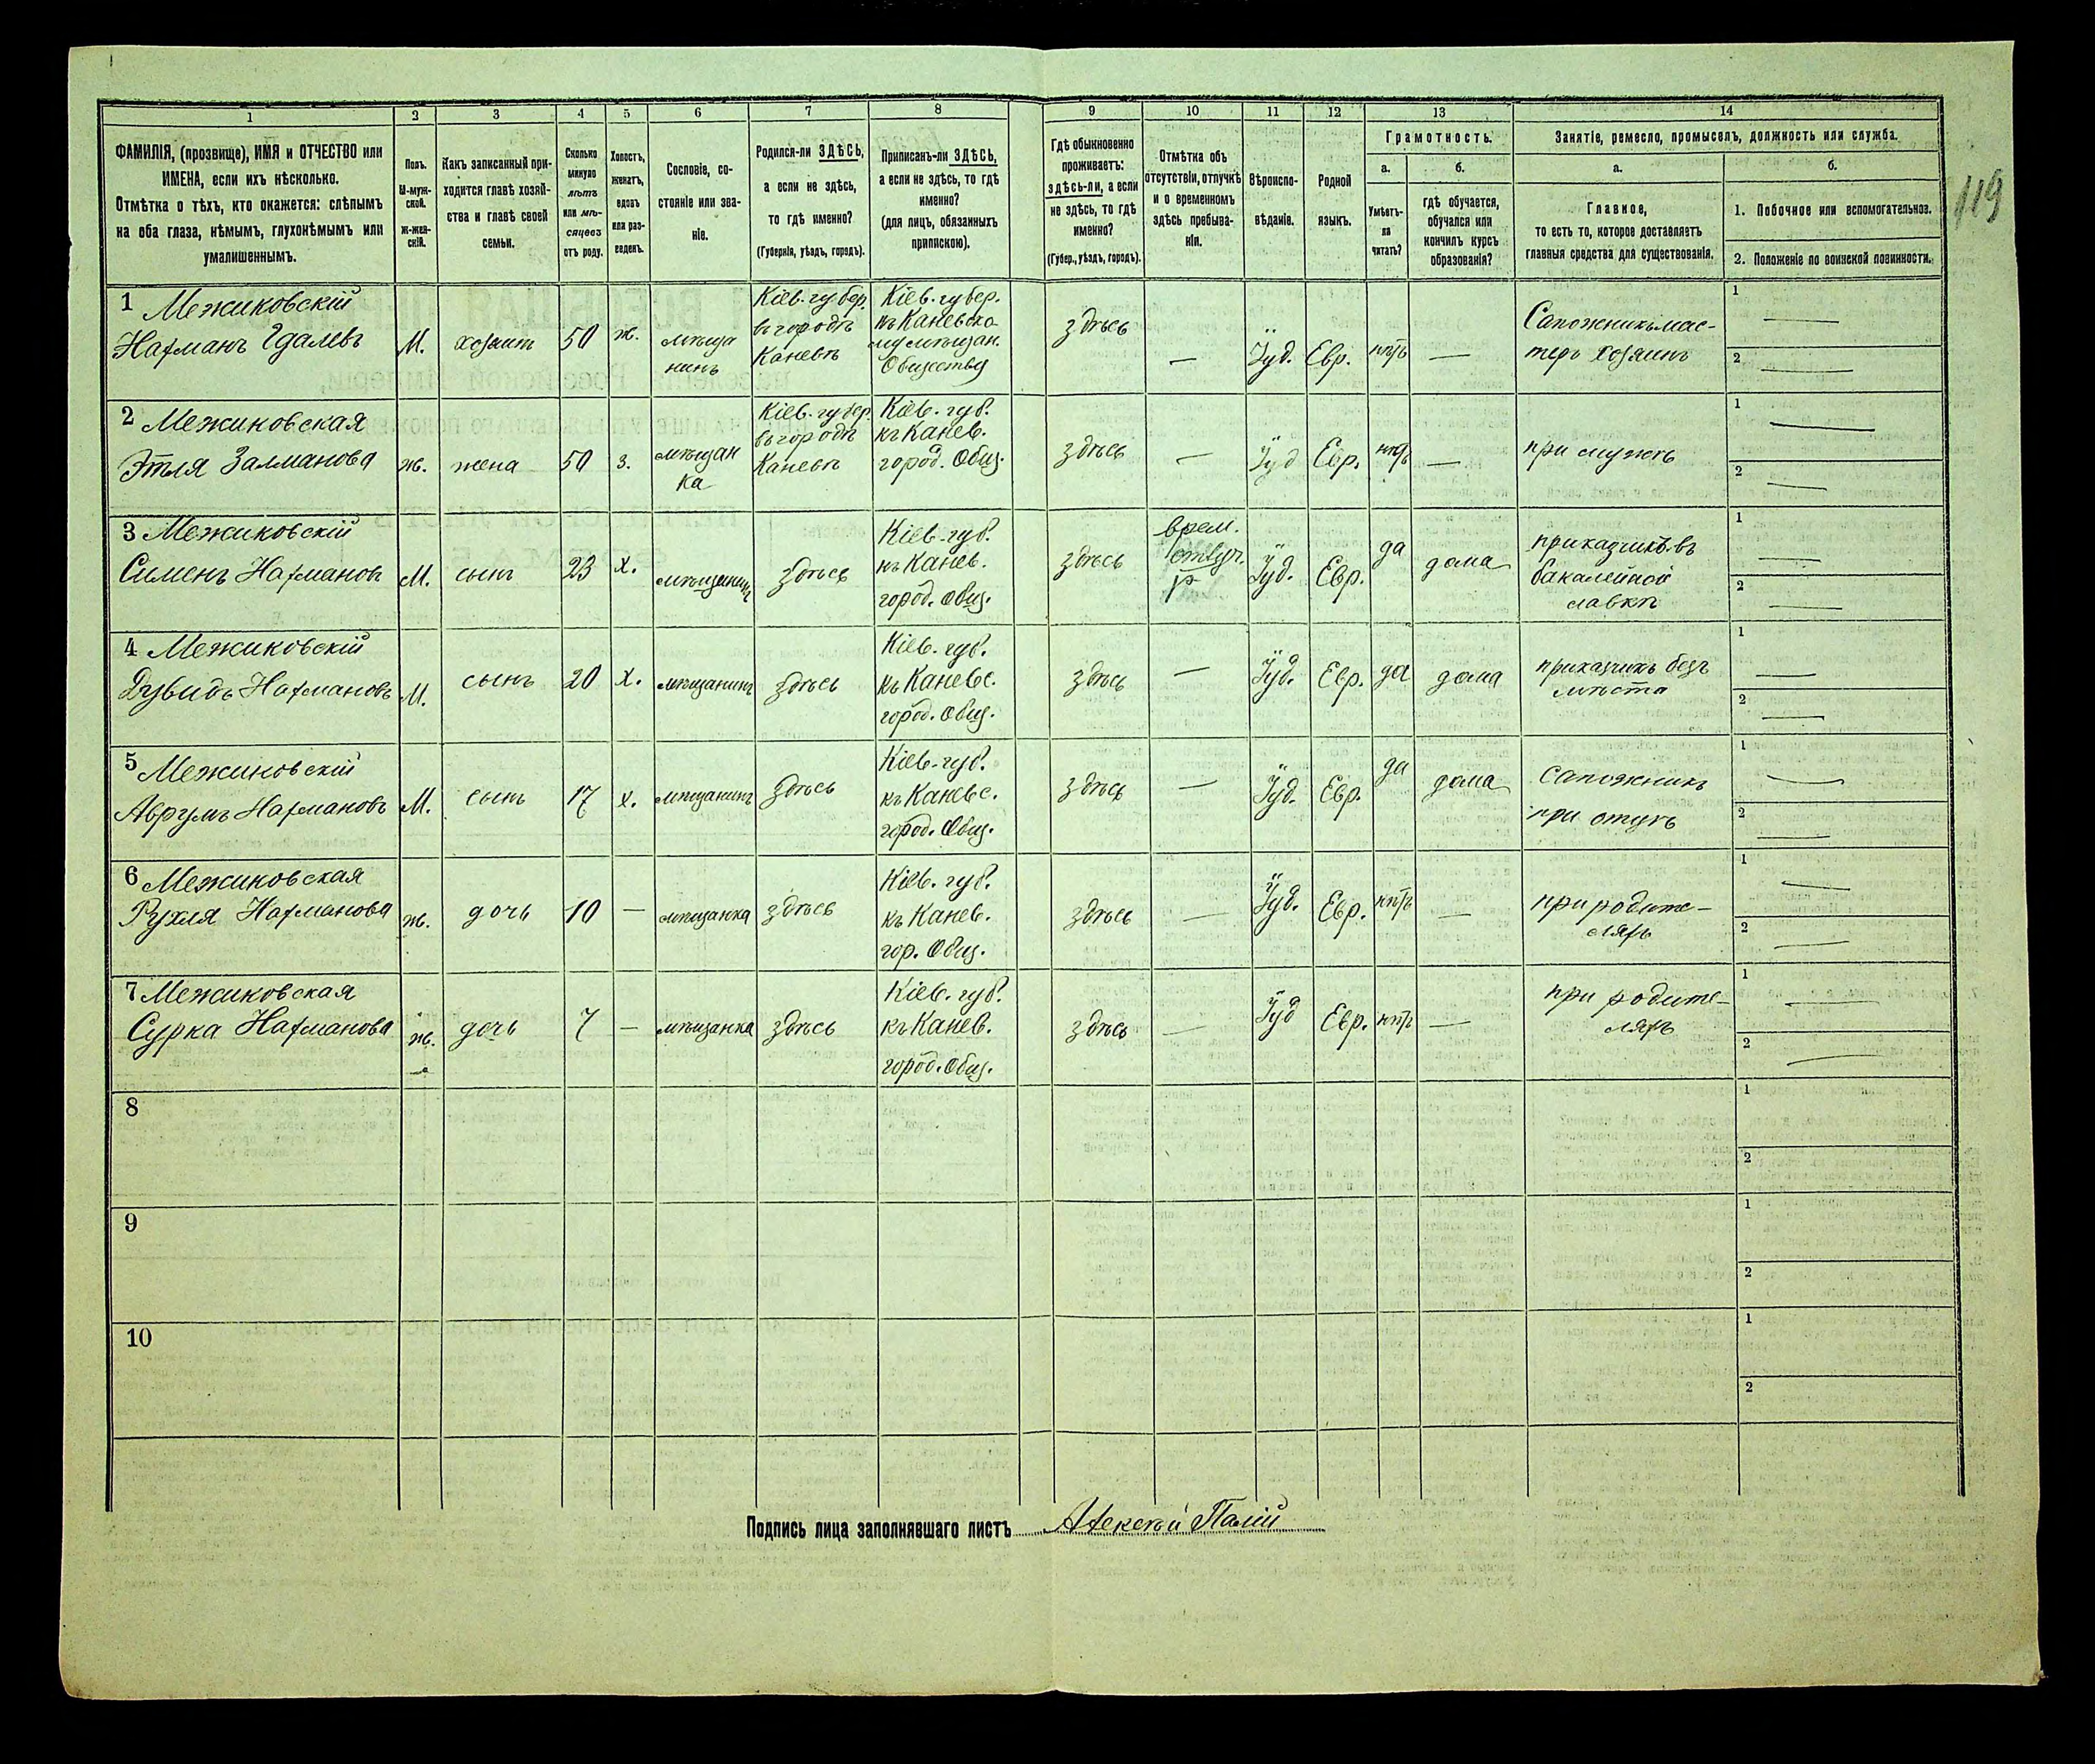 119
1 2 3 4 5 6 7 8 9 10 11 12 13 14
ФАМИЛІЯ, (прозвище), ИМЯ и ОТЧЕСТВО или
ИМЕНА, если ихъ нѣсколько.
Отмѣтка о тѣхъ, кто окажется: слѣпымъ
на оба глаза, нѣмымъ, глухонѣмымъ или
умалишеннымъ.
Полъ.
М-муж-
ской.
ж-жен-
скій.
Какъ записанный при-
ходится главѣ хозяй-
ства и главѣ своей
семьи.
Сколько
минуло
лѣтъ
или мѣ-
сяцевъ
отъ роду.
Холостъ,
женатъ,
вдовъ
или раз-
веденъ.
Сословіе, со-
стояніе или зва-
ніе.
Родился-ли ЗДѢСЬ,
а если не здѣсь,
то гдѣ именно?
(Губернія, уѣздъ, городъ).
Приписанъ-ли ЗДѢСЬ,
а если не здѣсь, то гдѣ
именно?
(для лицъ, обязанныхъ
припискою).
Гдѣ обыкновенно
проживаетъ:
здѣсь-ли, а если
не здѣсь, то гдѣ
именно?
(Губер., уѣздъ, городъ).
Отмѣтка объ
отсутствіи, отлучкѣ
и о временномъ
здѣсь пребыва-
ніи.
Вѣроиспо-
вѣданіе.
Родной
языкъ.
Грамотность.
а.
Умѣетъ-
ли
читать?
б.
гдѣ обучается,
обучался или
кончилъ курсъ
образованія?
Занятіе, ремесло, промыселъ, должность или служба.
а.
Главное,
то есть то, которое доставляетъ
главныя средства для существованія.
б.
1. Побочное или вспомогательное.
2. Положеніе по воинской повинности.
1 Межиковскій
Нахманъ Гдалевъ
М.
хозяинъ
50
ж.
мѣща
нинъ
Кіев. губер.
въ городѣ
Каневѣ
Кіев. губер.
къ Каневско-
му мѣщан.
Обществу
здѣсь
—
Іуд.
Евр.
нѣтъ
—
Сапожникъ мас-
теръ хозяинъ
1 —
2 —
2 Межиковская
Этля Залманова
ж.
жена
50
з.
мѣщан
ка
Кіев. губер.
въ городѣ
Каневѣ
Кіев. губ.
къ Канев.
город. Общ.
здѣсь
—
Іуд
Евр.
нѣтъ
—
при мужѣ
1 —
2 —
3 Межиковскій
Сименъ Нахмановъ
М.
сынъ
23
х.
мѣщанинъ
здѣсь
Кіев. губ.
къ Канев.
город. Общ.
здѣсь
врем.
Іуд.
Евр.
да
дома
приказчикъ въ
бакалейной
лавкѣ
1 —
2 —
4 Межиковскій
Дувидъ Нахмановъ
М.
сынъ
20
х.
мѣщанинъ
здѣсь
Кіев. губ.
къ Каневс.
город. Общ.
здѣсь
—
Іуд.
Евр.
да
дома
приказчикъ безъ
мѣста
1 —
2 —
5 Межиковскій
Аврумъ Нахмановъ
М.
сынъ
17
х.
мѣщанинъ
здѣсь
Кіев. губ.
къ Каневс.
город. Общ.
здѣсь
—
Іуд.
Евр.
да
дома
сапожникъ
при отцѣ
1 —
2 —
6 Межиковская
Рухля Нахманова
ж.
дочь
10
—
мѣщанка
здѣсь
Кіев. губ.
къ Канев.
гор. Общ.
здѣсь
—
Іуд.
Евр.
нѣтъ
—
при родите-
ляхъ
1 —
2 —
7 Межиковская
Сурка Нахманова
ж.
дочь
7
—
мѣщанка
здѣсь
Кіев. губ.
къ Канев.
город. Общ.
здѣсь
—
Іуд
Евр.
нѣтъ
—
при родите-
ляхъ
1 —
2 —
8
1
2
9
1
2
10
1
2
Подпись лица заполнявшаго листъ Алексѣй Палій